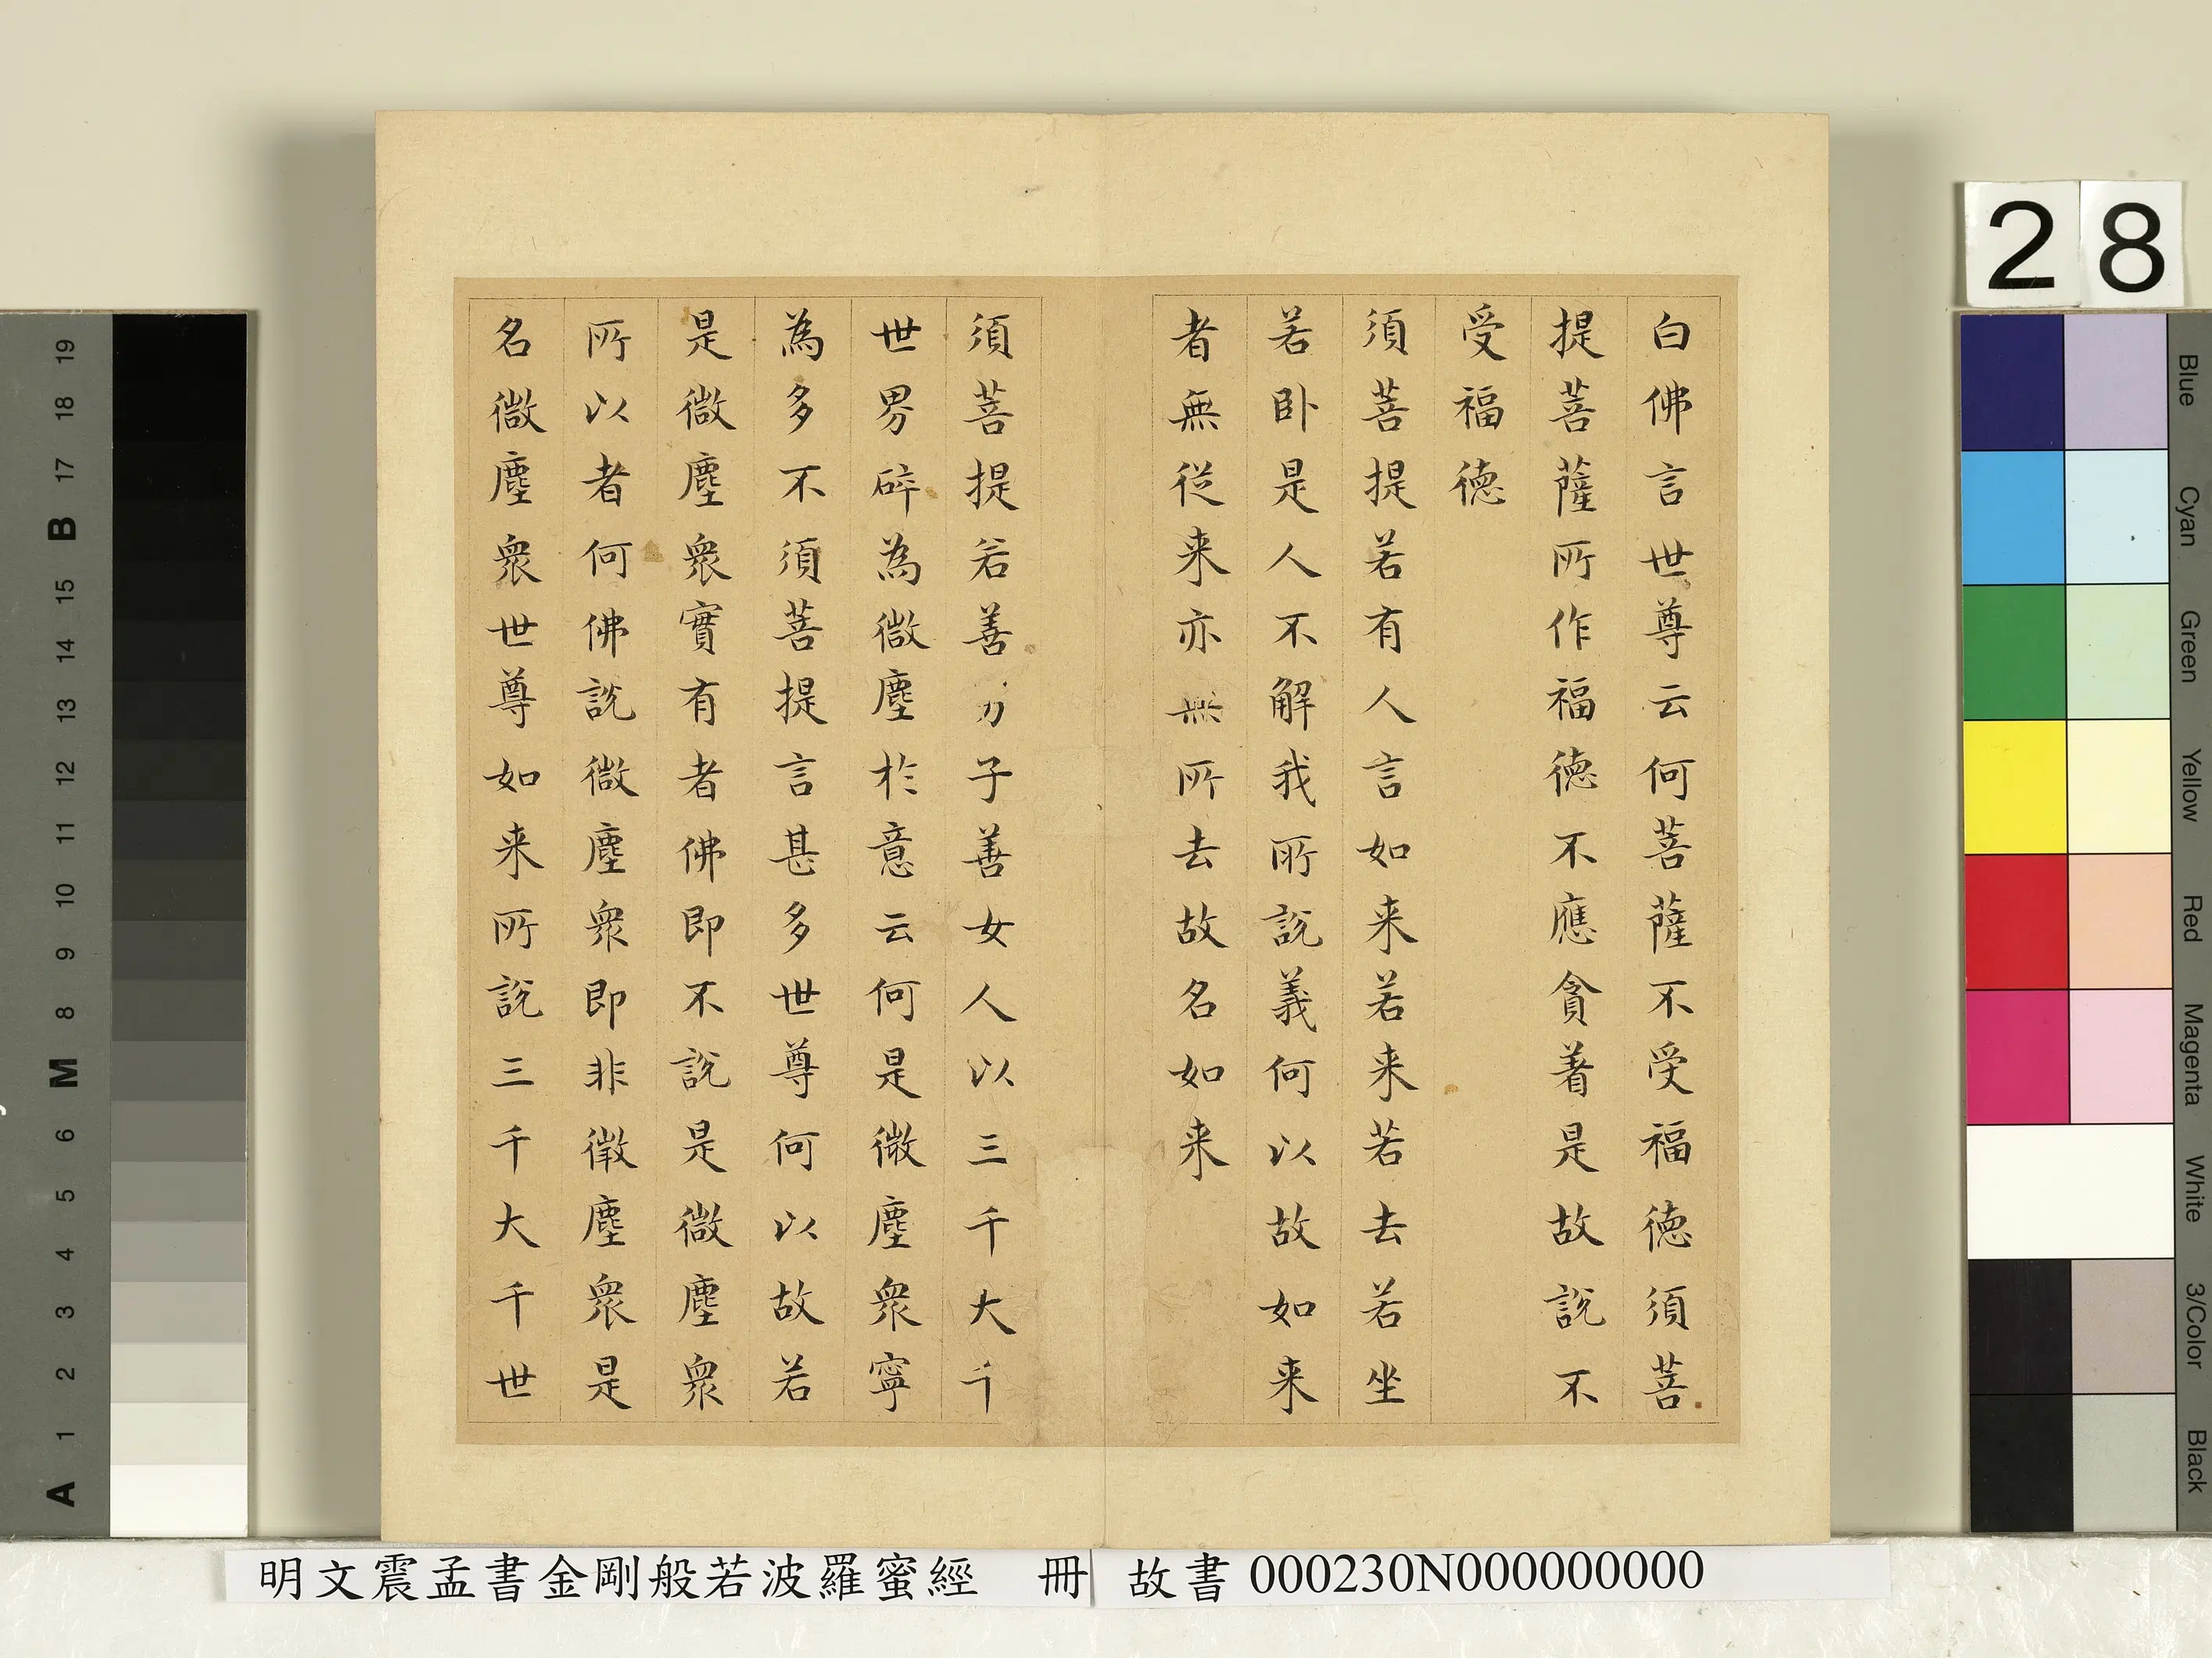 白佛言世尊云何菩薩不受福德須菩
提菩薩所作福德不應貪著是故說不
受福德
須菩提若有人言如来若来若去若坐
若卧是人不解我所說義何以故如来
者無從来亦無所去故名如来
須菩提若善男子善女人以三千大千
世界碎為微塵於意云何是微塵衆寧
為多不須菩提言甚多世尊何以故若
是微塵衆實有者佛即不說是微塵衆
所以者何佛說微塵衆即非微塵衆是
名微塵衆世尊如来所說三千大千世
明文震孟書金剛般若波羅蜜經 冊 故書000230N000000000
28
Blue
Cyan
Green
Yellow
Red
Magenta
White
3/Color
Black
19
18
17
B
15
14
13
12
11
10
9
8
M
6
5
4
3
2
1
A